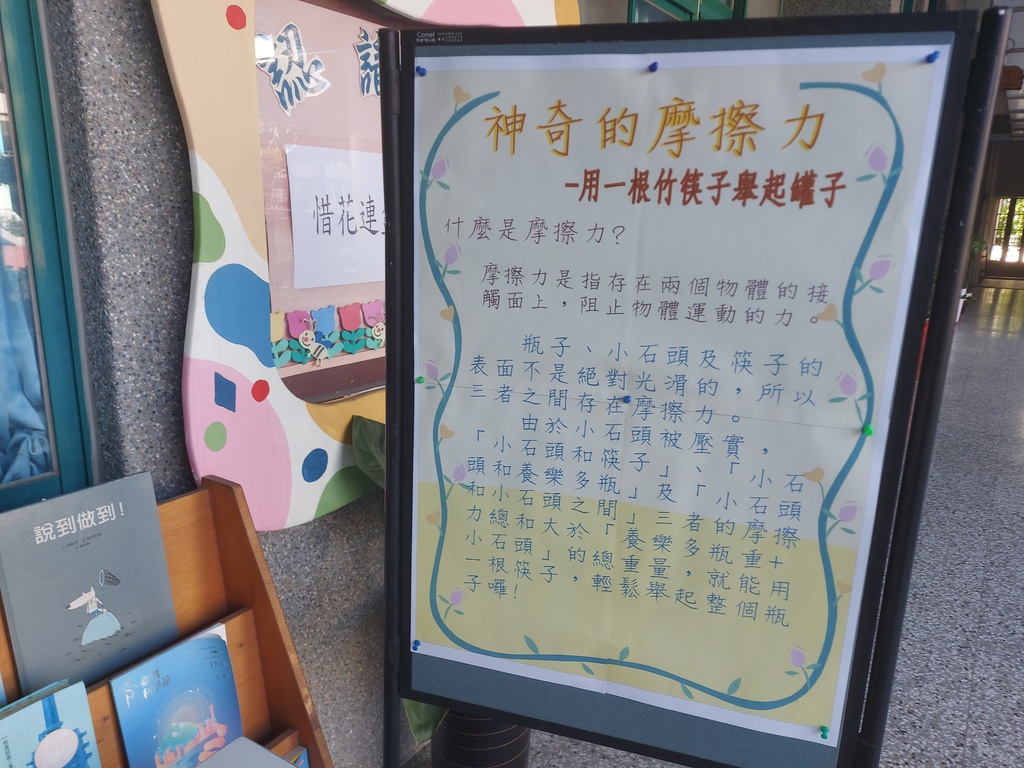 認 讀
惜花連
神奇的摩擦力
-用一根竹筷子舉起罐子
什麼是摩擦力?
摩擦力是指存在兩個物體的接
觸面上,阻止物體運動的力。
瓶子、小石頭及筷子的
表面不是絕對光滑的,所以
三者之間存在摩擦力。
由於小石頭被壓實,
「小石頭和筷子」、「小石
頭和養樂多瓶」及「小石頭
和小石頭」之間三者的摩擦
力總和大於「養樂多瓶重+
小石頭」的總重量,就能用
一根筷子輕鬆舉起整個瓶
子囉!
說到做到!